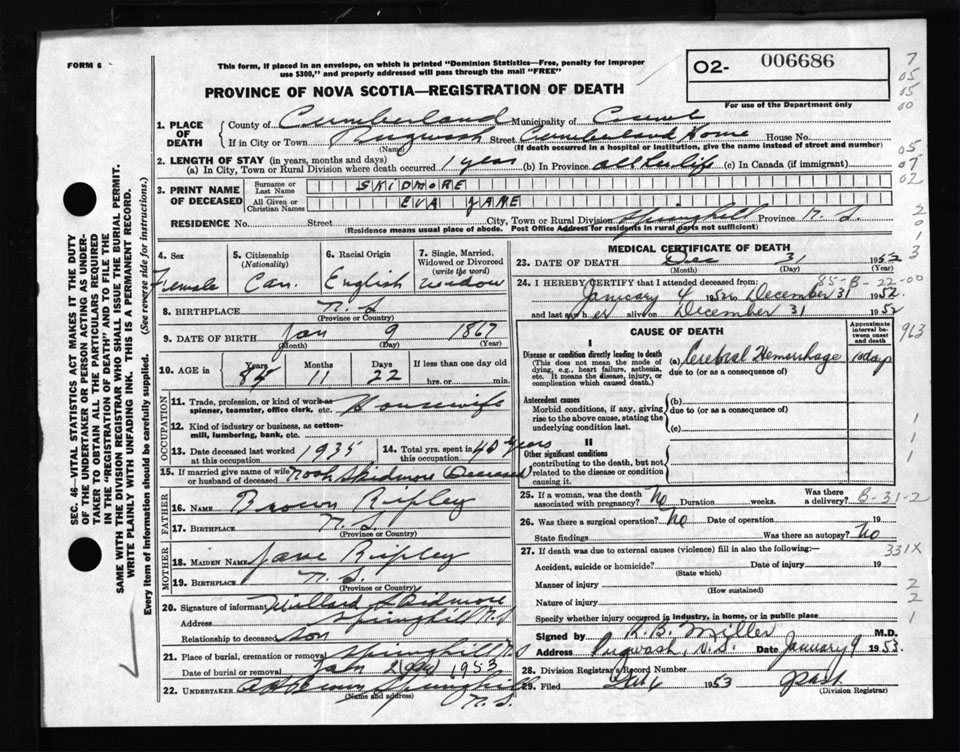 FORM 6
This form, if placed in an envelope, on which is printed "Dominion Statistics—Free, penalty for improper
use $300," and properly addressed will pass through the mail "FREE"
O2- 006686
For use of the Department only
PROVINCE OF NOVA SCOTIA—REGISTRATION OF DEATH
1. PLACE OF DEATH
County of Cumberland Municipality of
If in City or Town Pugwash Street Cumberland Home House No.
(Name) (If death occurred in a hospital or institution, give the name instead of street and number)
2. LENGTH OF STAY (in years, months and days)
(a) In City, Town or Rural Division where death occurred 1 year (b) In Province all her life (c) In Canada (if immigrant)
3. PRINT NAME OF DECEASED
Surname or Last Name SKIDMORE
All Given or Christian Names EVA JANE
RESIDENCE No. Street City, Town or Rural Division Springhill Province N. S.
(Residence means usual place of abode. Post Office Address for residents in rural parts not sufficient)
4. Sex Female
5. Citizenship (Nationality) Can.
6. Racial Origin English
7. Single, Married, Widowed or Divorced (write the word) widow
8. BIRTHPLACE N. S
(Province or Country)
9. DATE OF BIRTH Jan 9 1867
(Month) (Day) (Year)
10. AGE in Years 85 Months 11 Days 22 If less than one day old hrs. or min.
OCCUPATION
11. Trade, profession, or kind of work as spinner, teamster, office clerk, etc. Housewife
12. Kind of industry or business, as cotton-mill, lumbering, bank, etc.
13. Date deceased last worked at this occupation 1935
14. Total yrs. spent in this occupation 40 years
15. If married give name of wife or husband of deceased Noah Skidmore Deceased
FATHER
16. NAME Brown Ripley
17. BIRTHPLACE N. S.
(Province or Country)
MOTHER
18. MAIDEN NAME Jane Ripley
19. BIRTHPLACE N. S.
(Province or Country)
20. Signature of informant Willard Skidmore
Address Springhill N. S
Relationship to deceased son
21. Place of burial, cremation or removal Springhill N S
Date of burial or removal Jan 1953
22. UNDERTAKER Springhill N. S.
(Name and address)
MEDICAL CERTIFICATE OF DEATH
23. DATE OF DEATH Dec 31 1952
(Month) (Day) (Year)
85-B-22-00
24. I HEREBY CERTIFY that I attended deceased from:
January 4 1952 to December 31 1952
and last saw her alive on December 31 1952
CAUSE OF DEATH
Approximate interval between onset and death
I
Disease or condition directly leading to death
(This does not mean the mode of dying, e.g., heart failure, asthenia, etc. It means the disease, injury, or complication which caused death.)
(a) Cerebral Hemorrhage
due to (or as a consequence of)
Antecedent causes
Morbid conditions, if any, giving rise to the above cause, stating the underlying condition last.
(b)
due to (or as a consequence of)
(c)
II
Other significant conditions
contributing to the death, but not related to the disease or condition causing it.
25. If a woman, was the death associated with pregnancy? No Duration weeks. Was there a delivery? B-31-2
26. Was there a surgical operation? No Date of operation 19
State findings Was there an autopsy? No
27. If death was due to external causes (violence) fill in also the following:— 331X
Accident, suicide or homicide? Date of injury 19
(State which)
Manner of injury
(How sustained)
Nature of injury
Specify whether injury occurred in industry, in home, or in public place
Signed by K. B. Miller M.D.
Address Pugwash, N. S. Date January 9 1953.
28. Division Registrar's Record Number
29. Filed 1953
(Division Registrar)
SEC. 46—VITAL STATISTICS ACT MAKES IT THE DUTY
OF THE UNDERTAKER OR PERSON ACTING AS UNDER-
TAKER TO OBTAIN ALL THE PARTICULARS REQUIRED
IN THE "REGISTRATION OF DEATH" AND TO FILE THE
SAME WITH THE DIVISION REGISTRAR WHO SHALL ISSUE THE BURIAL PERMIT.
WRITE PLAINLY WITH UNFADING INK. THIS IS A PERMANENT RECORD.
Every item of information should be carefully supplied. (See reverse side for instructions.)
7
05
05
00
05
07
02
2
0
1
3
963
1
1
1
2
2
1